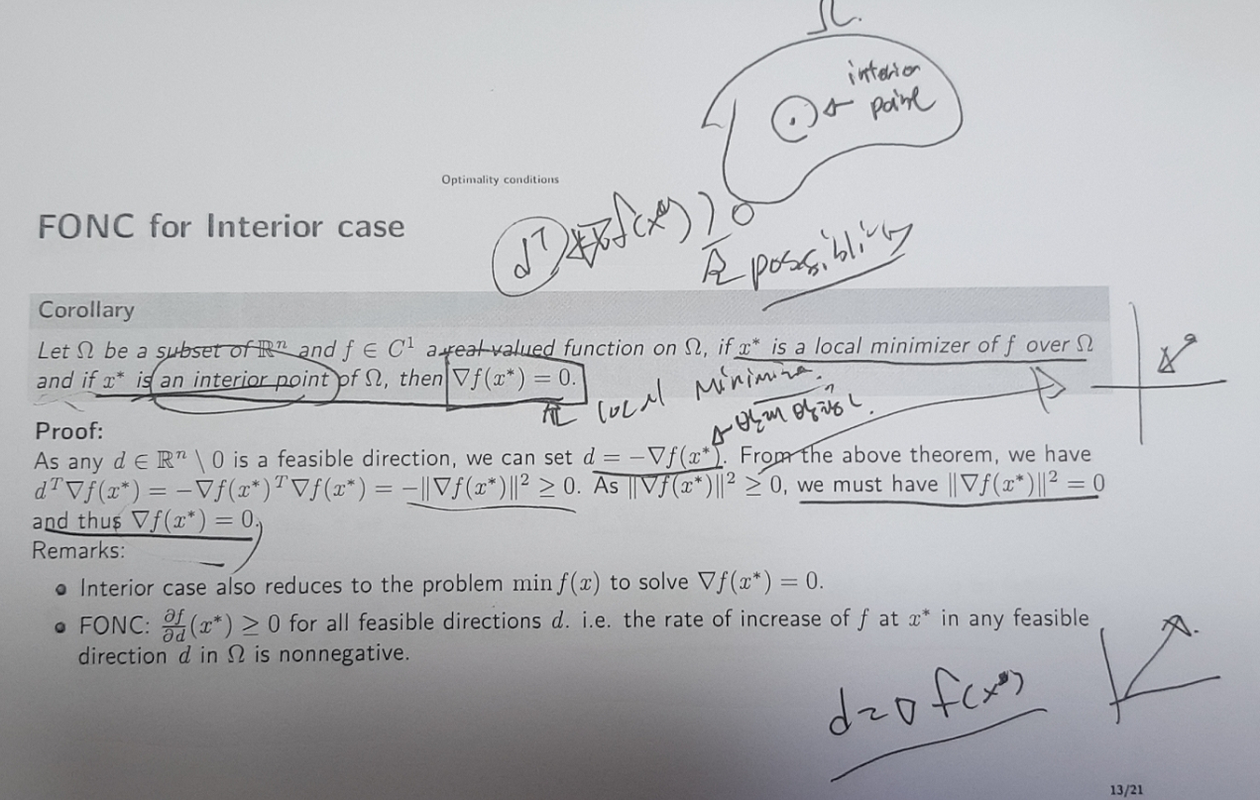 Ω.
interior
point
Optimality conditions
FONC for Interior case
dᵀ ∇f(x*) ≥ 0
possiblity
Corollary
Let Ω be a subset of ℝⁿ and f ∈ C¹ a real-valued function on Ω, if x* is a local minimizer of f over Ω
and if x* is an interior point of Ω, then ∇f(x*) = 0.
local Minimize.
Proof:
As any d ∈ ℝⁿ \ 0 is a feasible direction, we can set d = −∇f(x*). From the above theorem, we have
dᵀ∇f(x*) = −∇f(x*)ᵀ∇f(x*) = −‖∇f(x*)‖² ≥ 0. As ‖∇f(x*)‖² ≥ 0, we must have ‖∇f(x*)‖² = 0
and thus ∇f(x*) = 0.
Remarks:
• Interior case also reduces to the problem min f(x) to solve ∇f(x*) = 0.
• FONC: ∂f/∂d (x*) ≥ 0 for all feasible directions d. i.e. the rate of increase of f at x* in any feasible
direction d in Ω is nonnegative.
d = ∇f(x*)
13/21